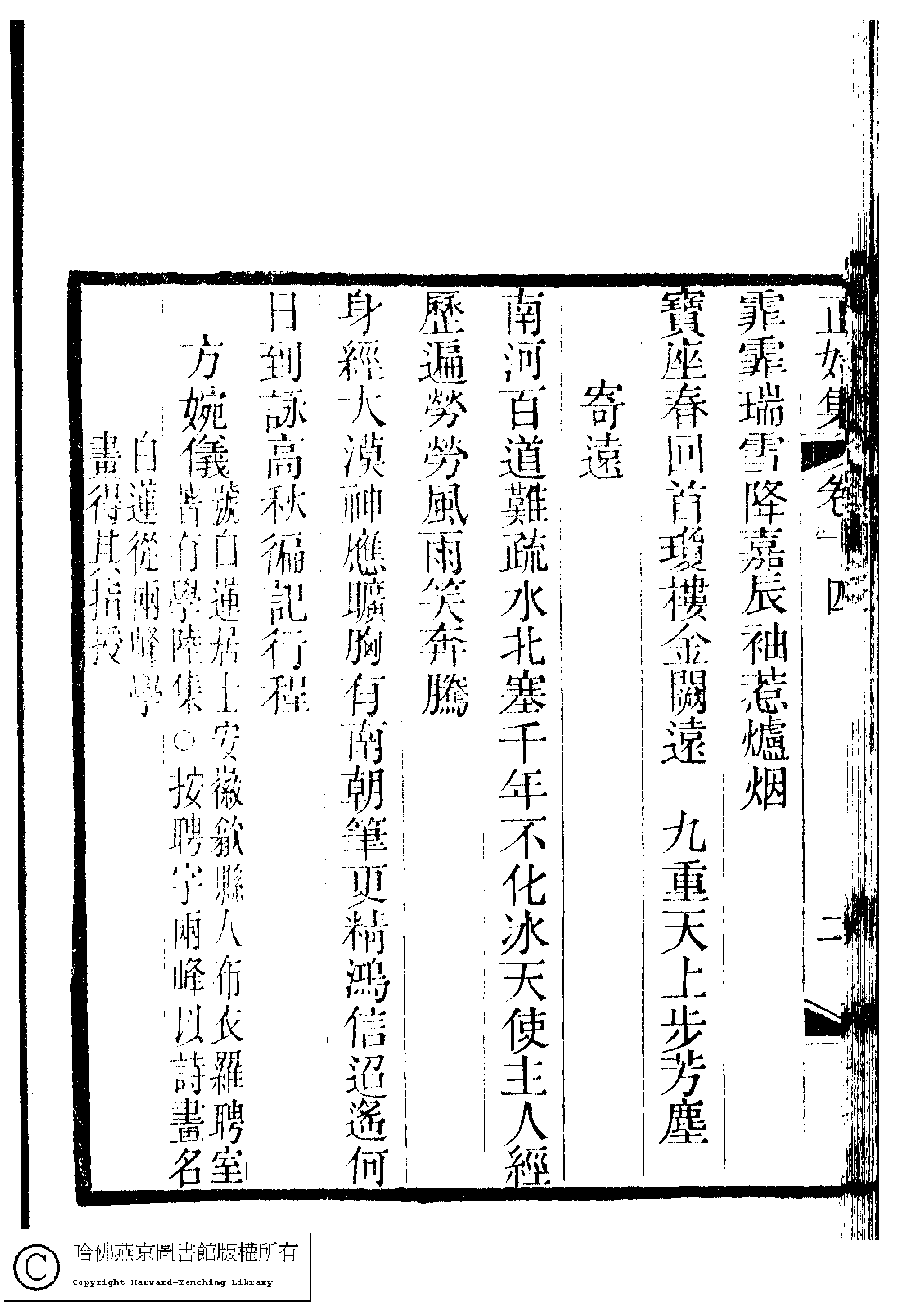 正始集 卷四 二
霏霏瑞雪降嘉辰袖惹爐烟
寶座春回首瓊樓金闕遠 九重天上步芳塵
寄遠
南河百道難疏水北塞千年不化冰天使主人經
歷遍勞勞風雨笑奔騰
身經大漠神應曠胸有南朝筆更精鴻信迢遙何
日到詠高秋徧記行程
方婉儀
號白蓮居士安徽歙縣人布衣羅聘室
著有學陸集○按聘字兩峰以詩畫名
白蓮從兩峰學
畫得其指授
哈佛燕京圖書館版權所有
Copyright Harvard-Yenching Library